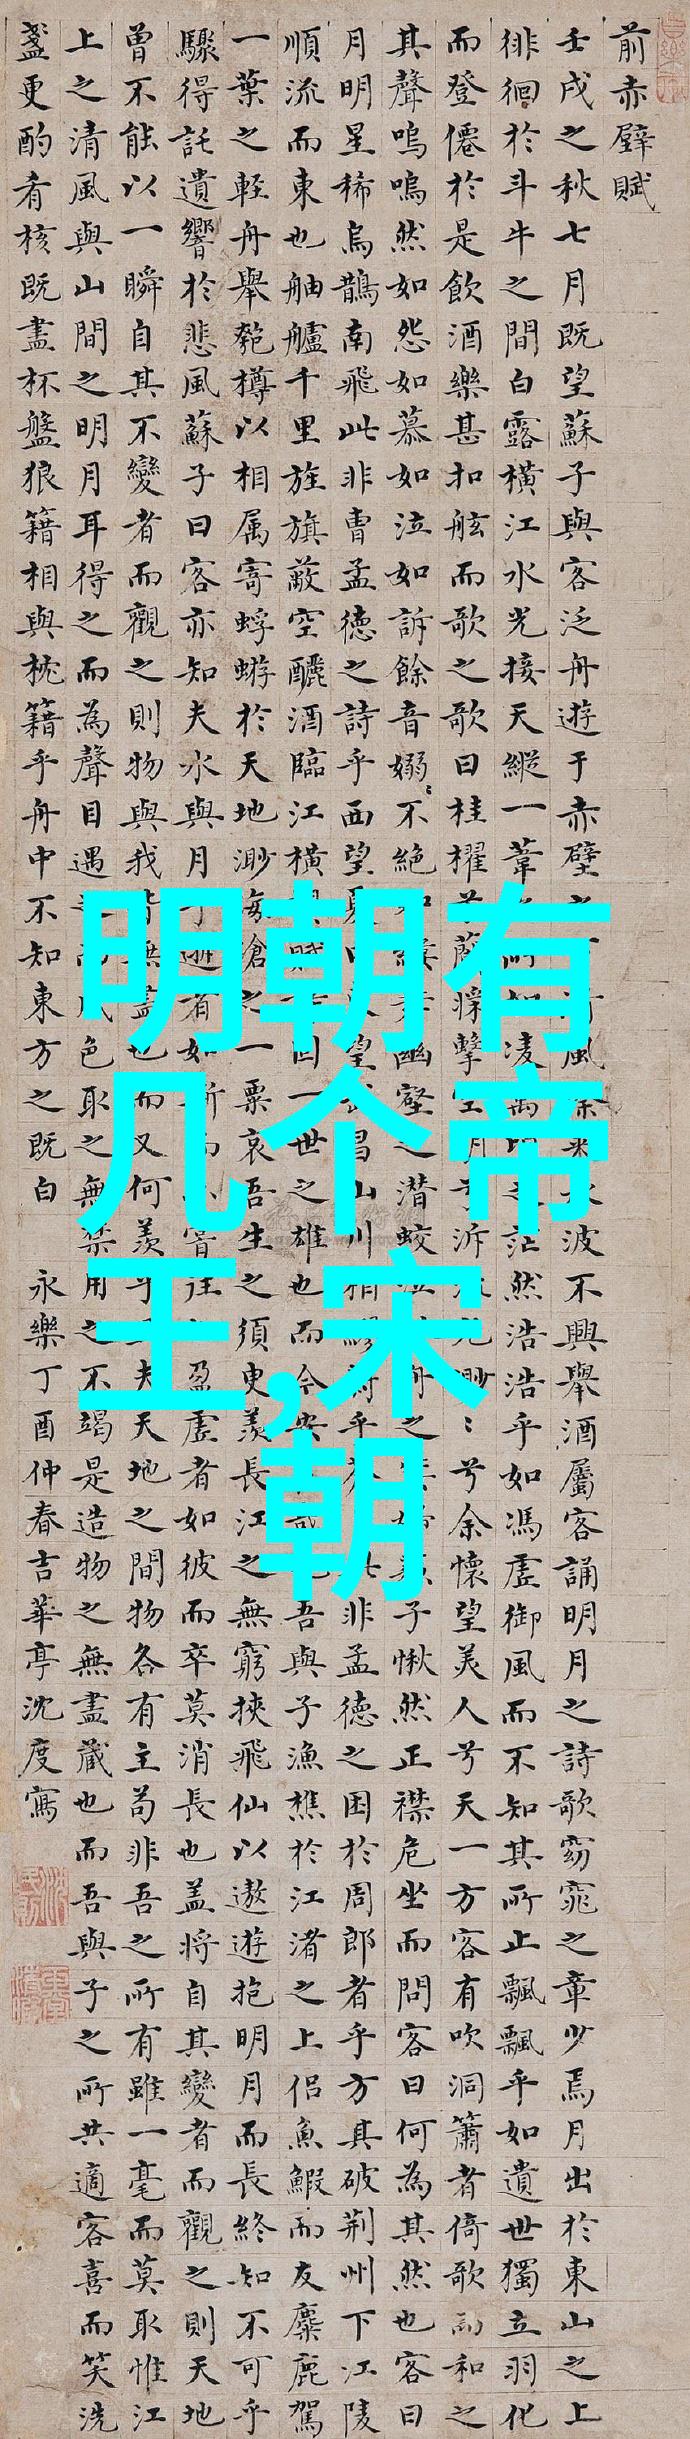 前赤壁賦
壬戌之秋七月既望蘇子與客泛舟遊于赤壁風波不興舉酒屬客誦明月之詩歌窈窕之章少焉月出於東山之上
徘徊於斗牛之間白露橫江水光接天縱一葦如凌茫然浩浩乎如馮虛御風而不知其所止飄飄乎如遺世獨立羽化
而登僊於是飲酒樂甚扣舷而歌之歌曰桂櫂蘭槳擊空泝渺〻兮余懷望美人兮天一方客有吹洞簫者倚歌而和之
其聲嗚嗚然如怨如慕如泣如訴餘音嫋〻不絕幽壑之潛蛟舟之子愀然正襟危坐而問客曰何為其然也客曰
月明星稀烏鵲南飛此非曹孟德之詩乎西望夏望昌山川相繆乎非孟德之困於周郎者乎方其破荊州下江陵
順流而東也舳艫千里旌旗蔽空釃酒臨江橫賦固一世之雄也而今安吾與子漁樵於江渚之上侶魚鰕而友麋鹿駕
一葉之輕舟舉匏樽以相属寄蜉蝣於天地渺滄之一粟哀吾生之須臾羨長江之無窮挾飛仙以遨遊抱明月而長終知不可乎
驟得託遺響於悲風蘇子曰客亦知夫水與月乎逝者如斯而嘗往盈虛者如彼而卒莫消長也盖將自其變者而觀之則天地
曾不能以一瞬自其不變者而觀之則物與我皆無盡也而又何羨乎夫天地之間物各有主苟非吾之所有雖一毫而莫取惟江
上之清風與山間之明月耳得之而為聲目遇之而成色取之無禁用之不竭是造物之無盡藏也而吾與子之所共適客喜而笑洗
盞更酌肴核既盡杯盤狼籍相與枕籍乎舟中不知東方之既白 永樂丁酉仲春吉華亭沈度寫
明朝有
几个帝
王,宋
朝